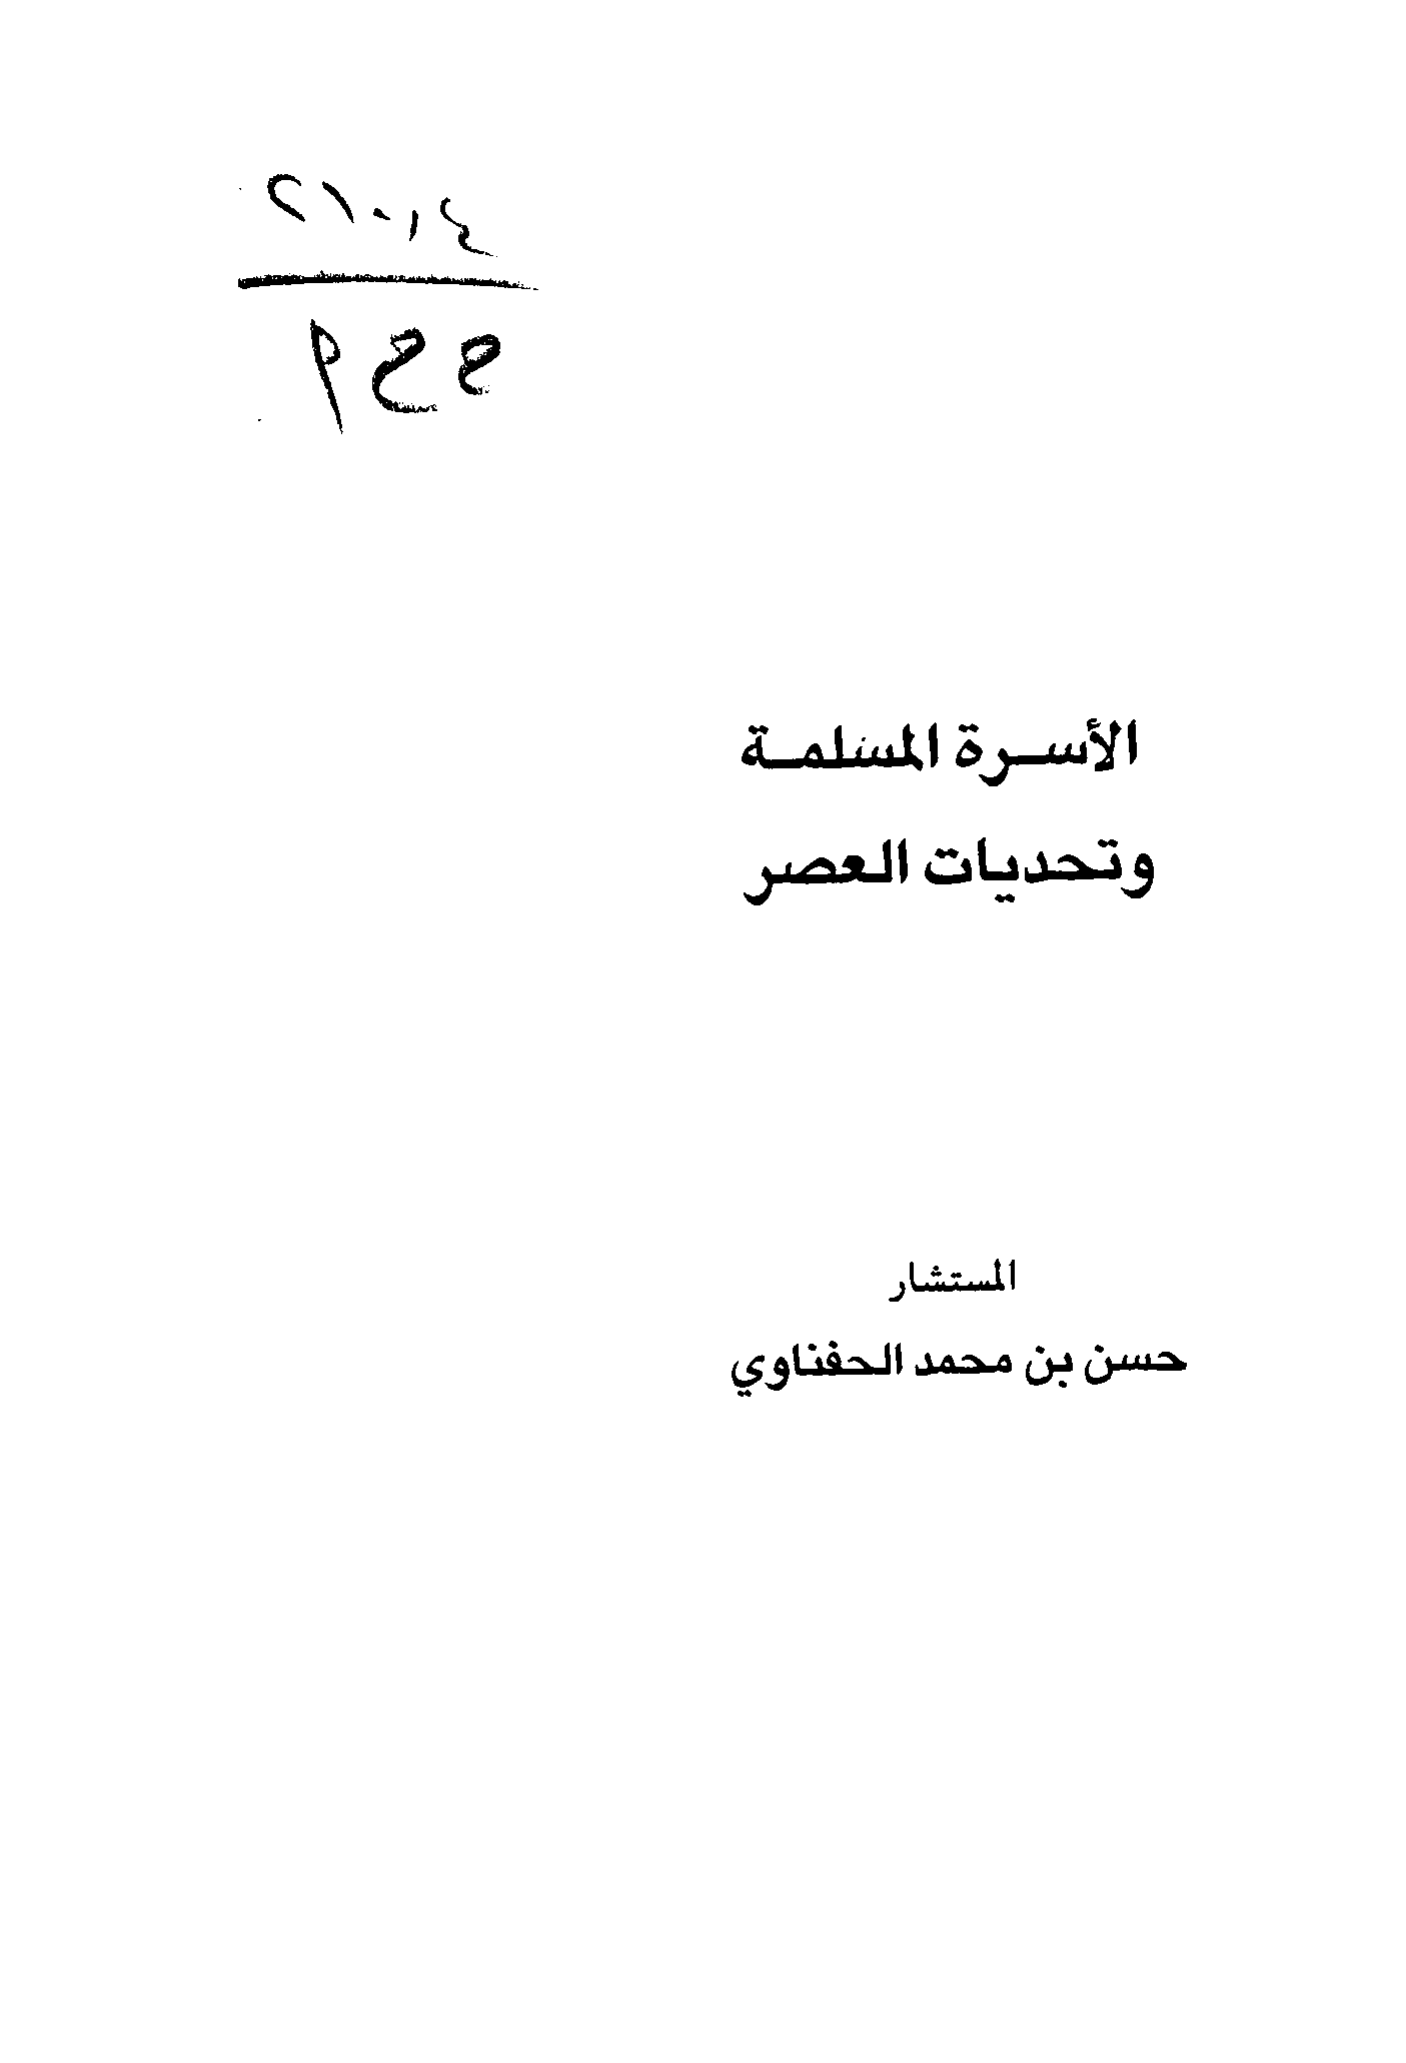 ٢١٠,١٤
ح ح م
الأسرة المسلمة
وتحديات العصر
المستشار
حسن بن محمد الحفناوي